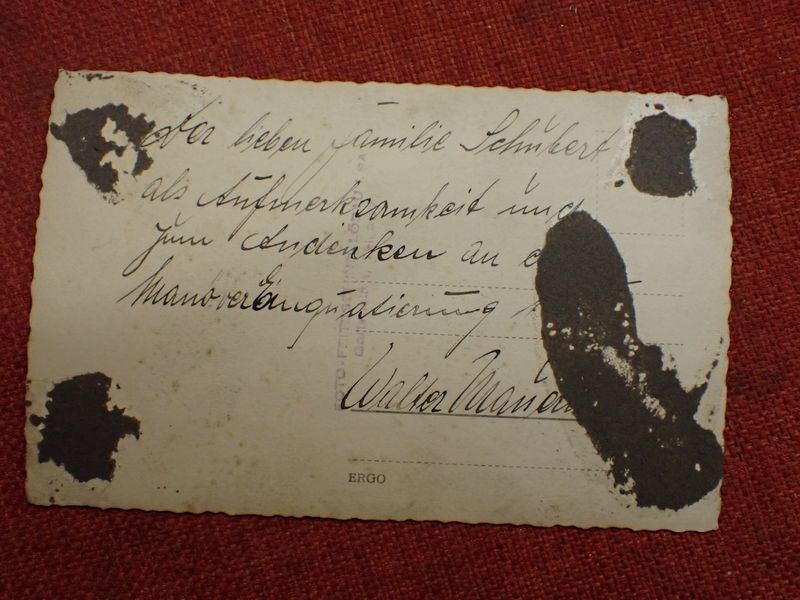 Der lieben Familie Schubert
als Aufmerksamkeit und
zum Andenken an
Manöver Einquatierung
Walter
ERGO